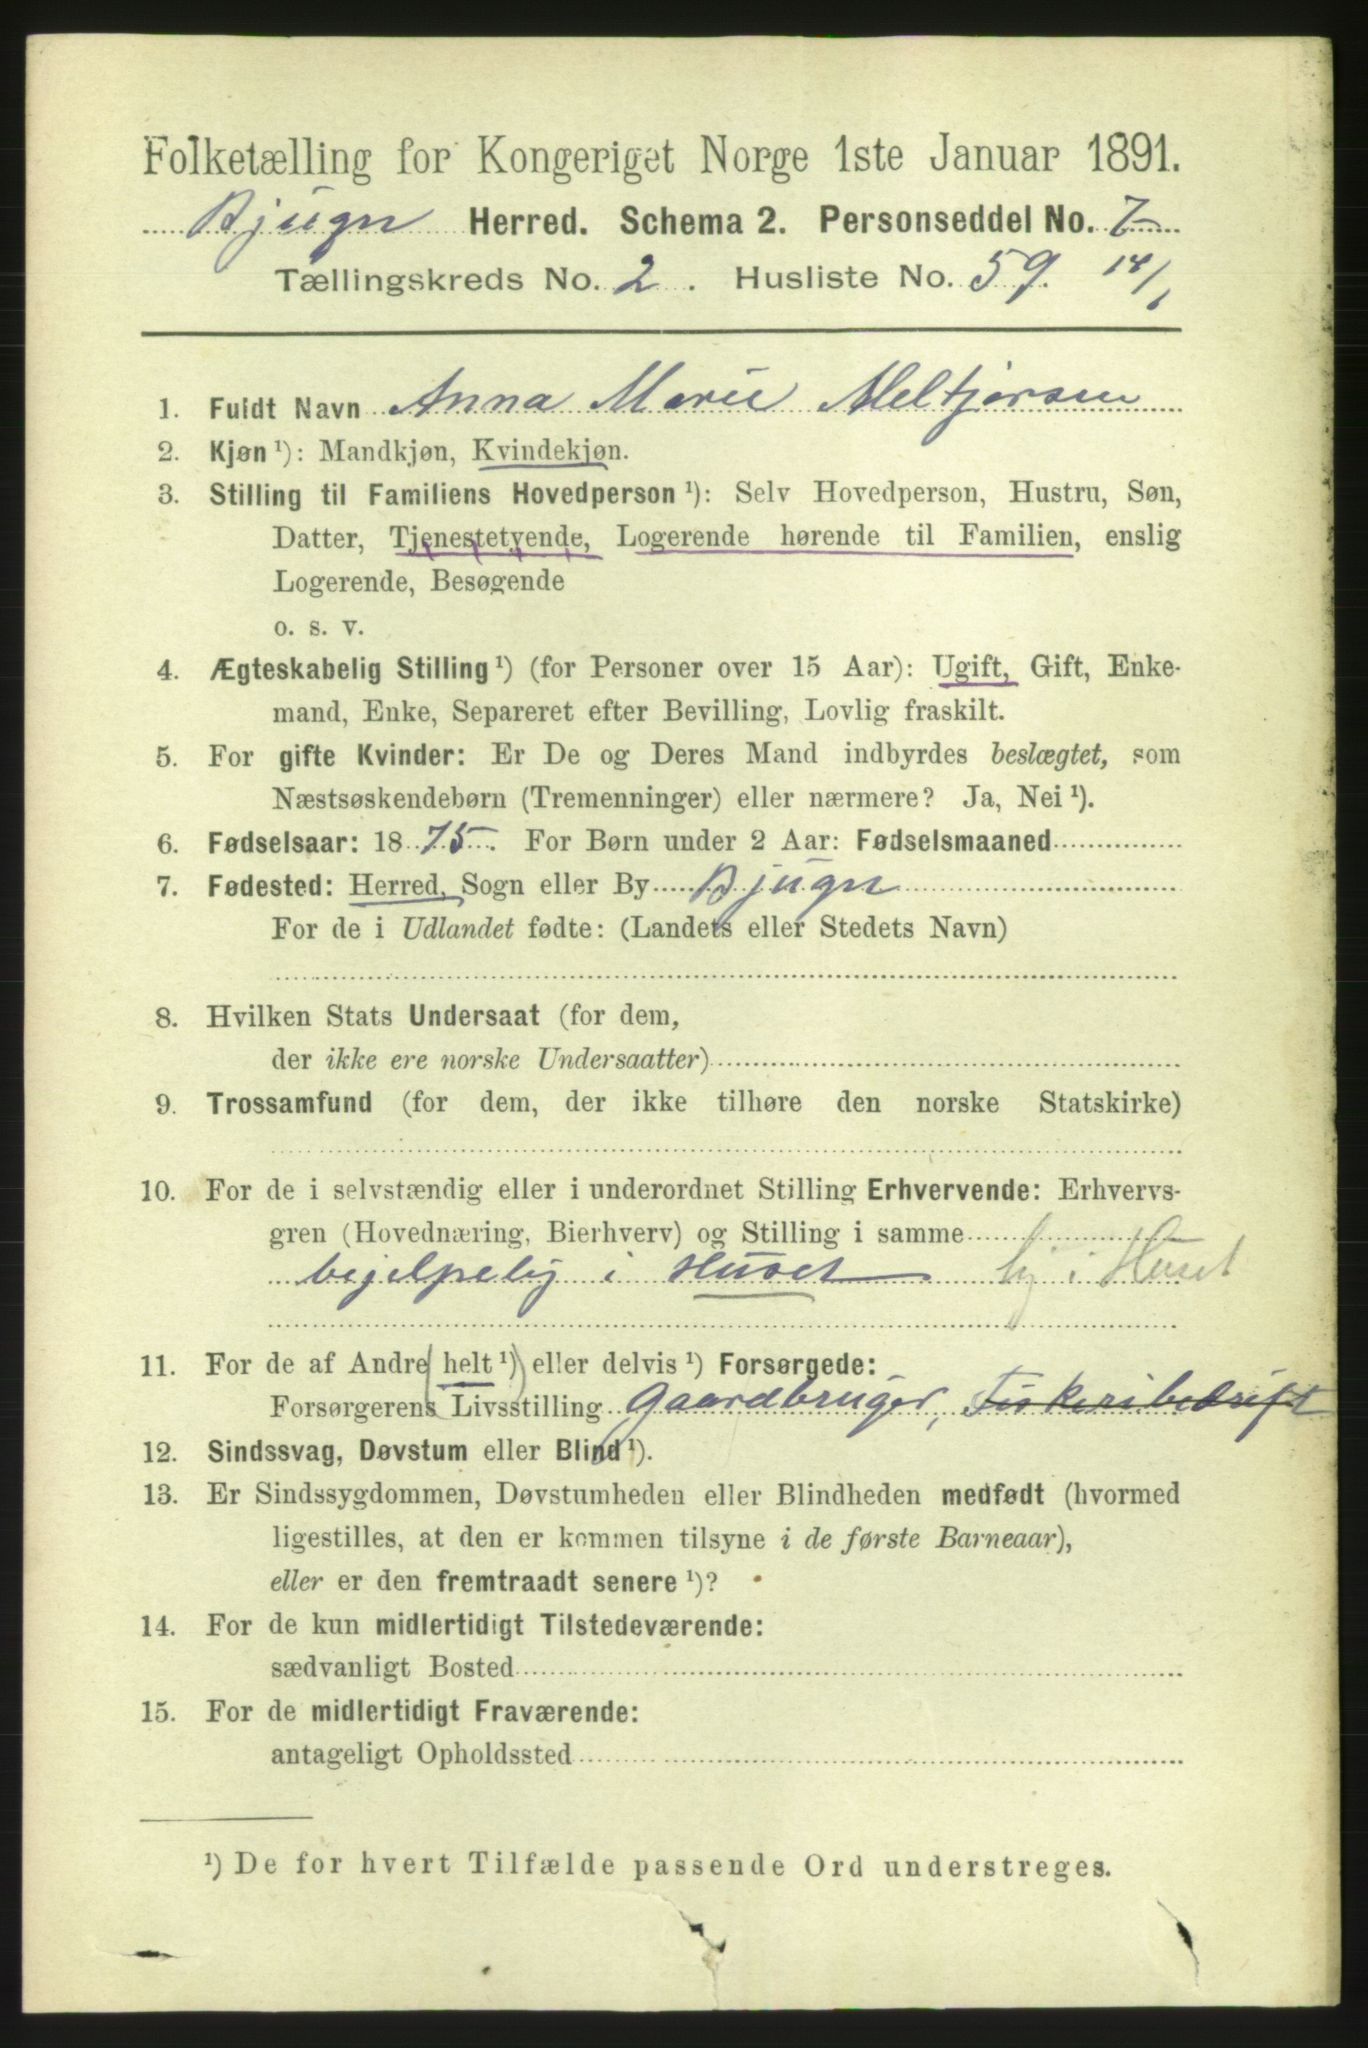 Folketælling for Kongeriget Norge 1ste Januar 1891.
Bjugn Herred. Schema 2. Personseddel No. 7
Tællingskreds No. 2. Husliste No. 59.
1. Fuldt Navn Anna Marie Meltjørsen
2. Kjøn ¹): Mandkjøn, Kvindekjøn.
3. Stilling til Familiens Hovedperson ¹): Selv Hovedperson, Hustru, Søn,
Datter, Tjenestetyende, Logerende hørende til Familien, enslig
Logerende, Besøgende
o. s. v.
4. Ægteskabelig Stilling ¹) (for Personer over 15 Aar): Ugift, Gift, Enke-
mand, Enke, Separeret efter Bevilling, Lovlig fraskilt.
5. For gifte Kvinder: Er De og Deres Mand indbyrdes beslægtet, som
Næstsøskendebørn (Tremenninger) eller nærmere? Ja, Nei ¹).
6. Fødselsaar: 1875. For Børn under 2 Aar: Fødselsmaaned
7. Fødested: Herred, Sogn eller By Bjugn
For de i Udlandet fødte: (Landets eller Stedets Navn)
8. Hvilken Stats Undersaat (for dem,
der ikke ere norske Undersaatter)
9. Trossamfund (for dem, der ikke tilhøre den norske Statskirke)
10. For de i selvstændig eller i underordnet Stilling Erhvervende: Erhvervs-
gren (Hovednæring, Bierhverv) og Stilling i samme
bejelpelig i Huset hj i Huset
11. For de af Andre (helt ¹) eller delvis ¹) Forsørgede:
Forsørgerens Livsstilling Gaardbruger, Fiskeribedrift
12. Sindssvag, Døvstum eller Blind ¹).
13. Er Sindssygdommen, Døvstumheden eller Blindheden medfødt (hvormed
ligestilles, at den er kommen tilsyne i de første Barneaar),
eller er den fremtraadt senere ¹)?
14. For de kun midlertidigt Tilstedeværende:
sædvanligt Bosted
15. For de midlertidigt Fraværende:
antageligt Opholdssted
¹) De for hvert Tilfælde passende Ord understreges.